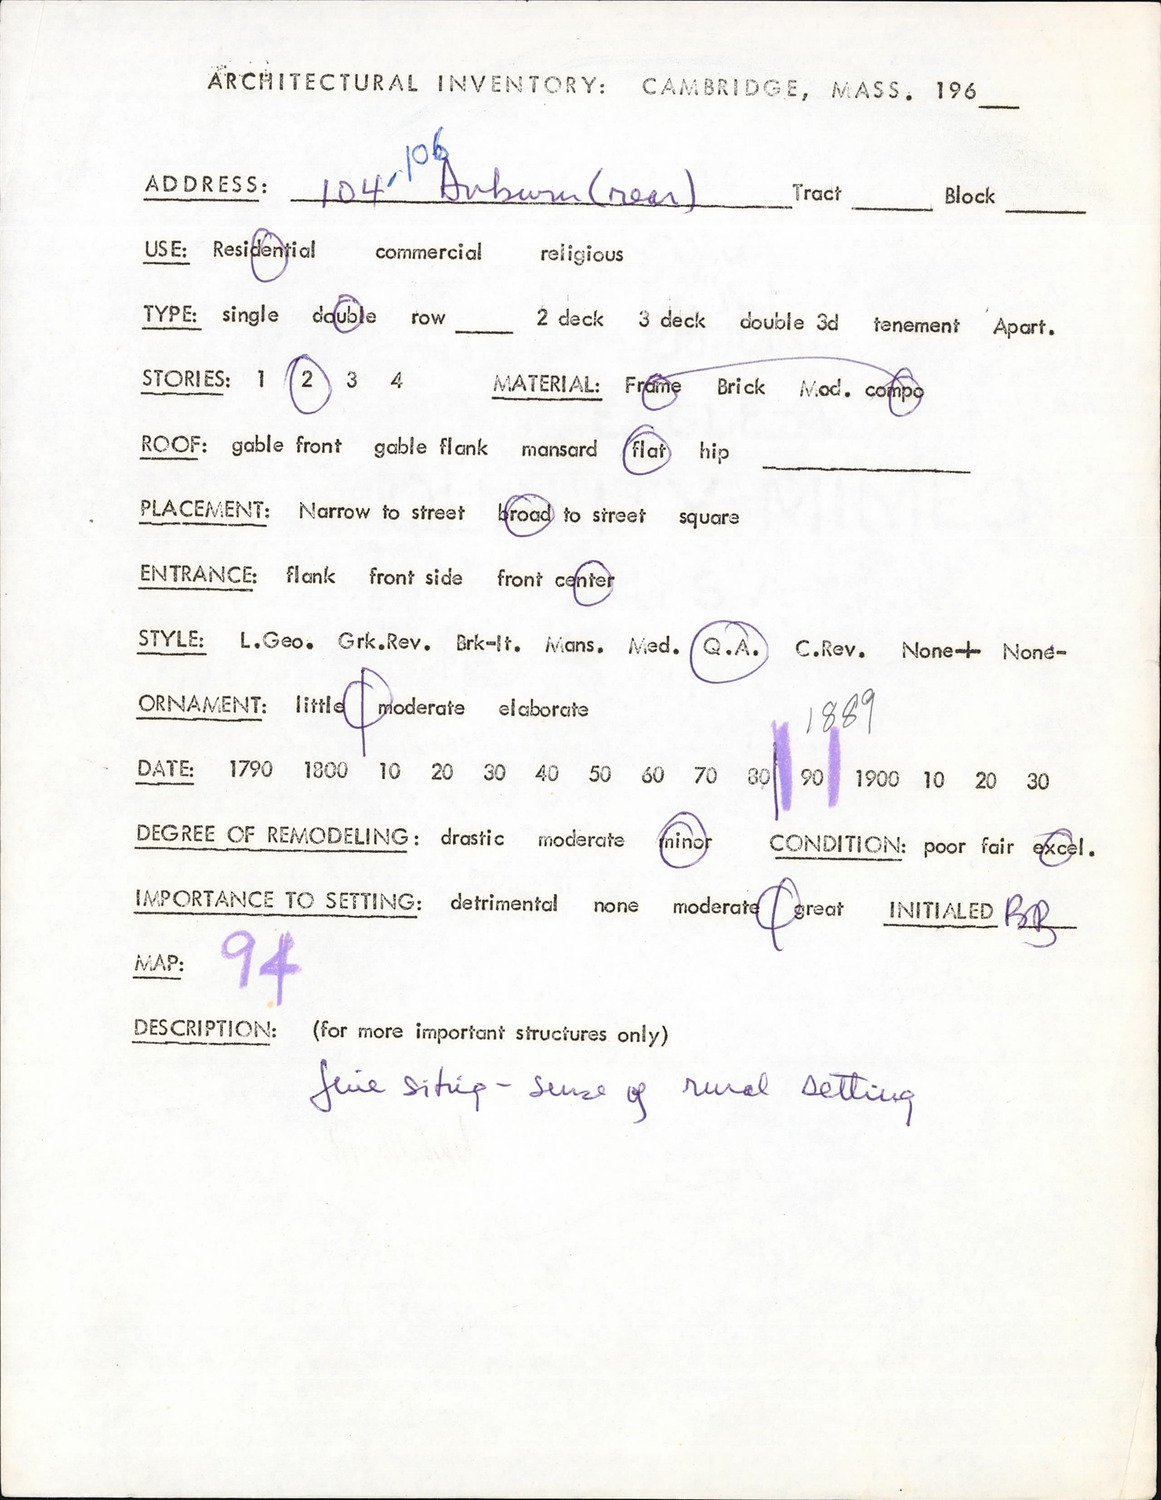 ARCHITECTURAL INVENTORY: CAMBRIDGE, MASS. 196__
ADDRESS: 104-106 Auburn (rear) Tract ____ Block ____
USE: Residential commercial religious
TYPE: single double row ____ 2 deck 3 deck double 3d tenement Apart.
STORIES: 1 2 3 4 MATERIAL: Frame Brick Mod. compo
ROOF: gable front gable flank mansard flat hip ____
PLACEMENT: Narrow to street broad to street square
ENTRANCE: flank front side front center
STYLE: L.Geo. Grk.Rev. Brk-It. Mans. Med. Q.A. C.Rev. None+ None-
ORNAMENT: little moderate elaborate
1889
DATE: 1790 1800 10 20 30 40 50 60 70 80 90 1900 10 20 30
DEGREE OF REMODELING: drastic moderate minor CONDITION: poor fair excel.
IMPORTANCE TO SETTING: detrimental none moderate great INITIALED BB
MAP: 94
DESCRIPTION: (for more important structures only)
fine siting - sense of rural setting